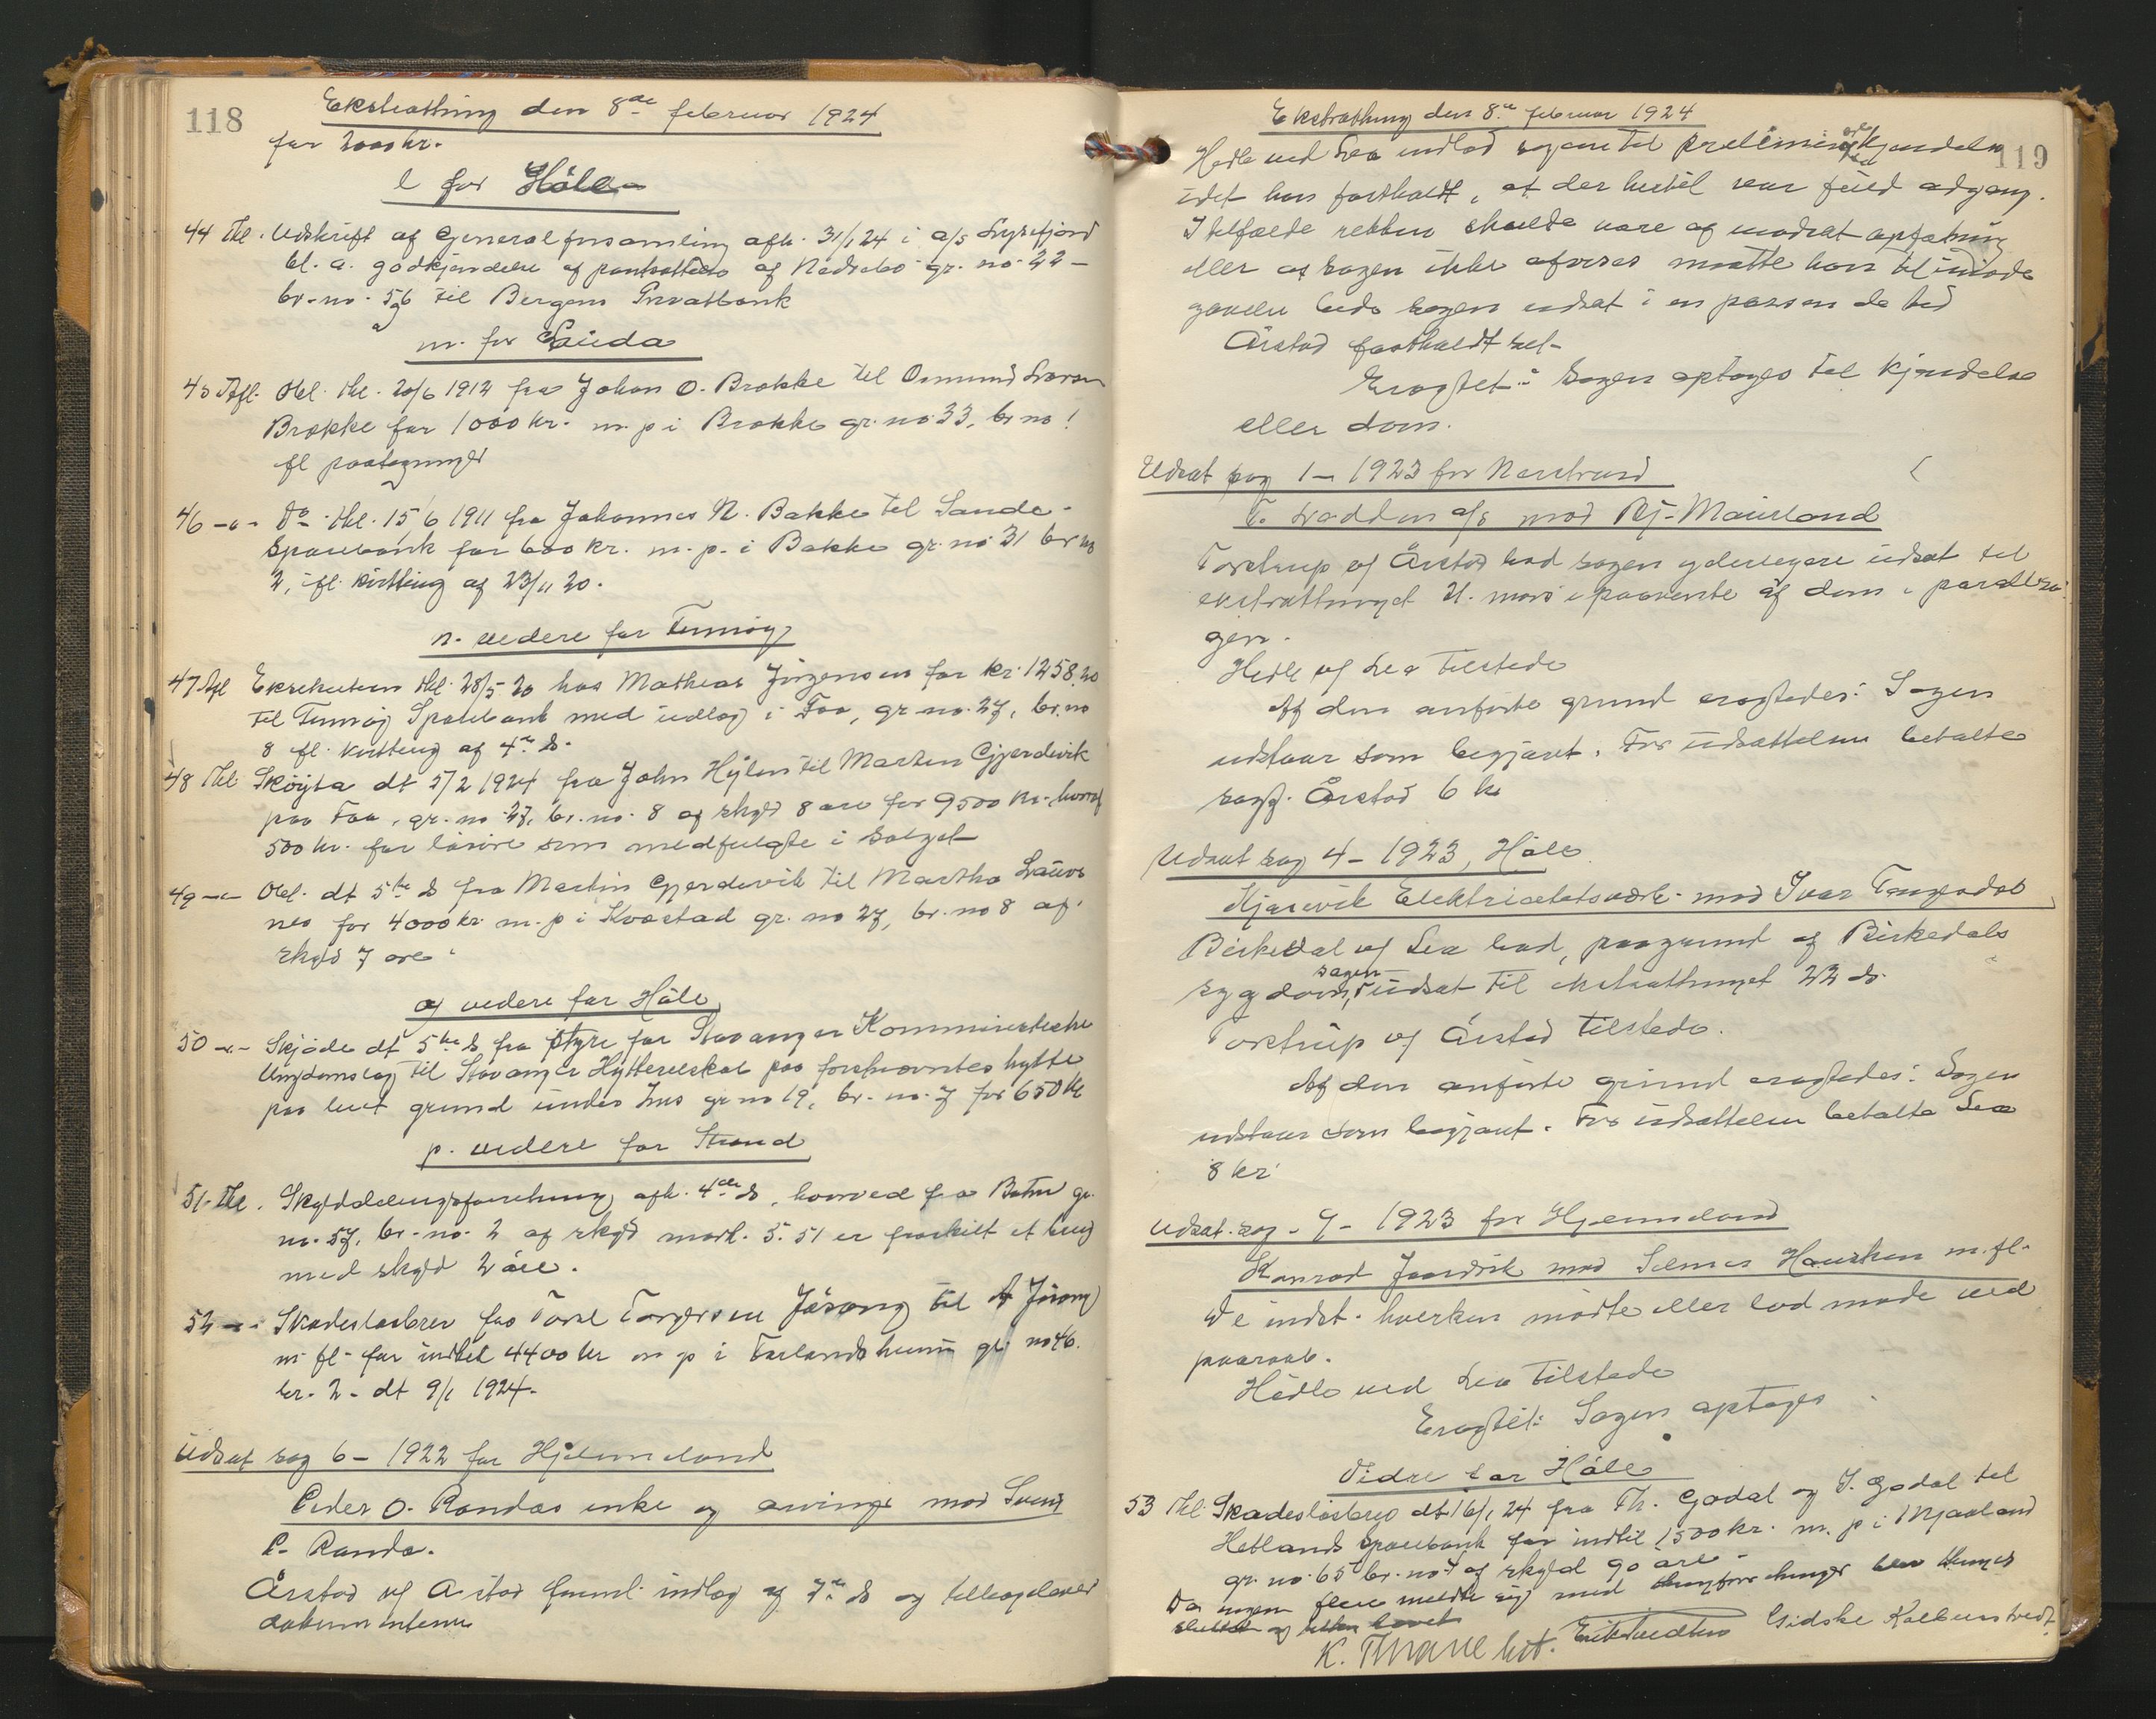 118
Ekstratting den 8de februar 1924
for 2000 kr.
l for Høle
44 Thl. Udskrift af Generalforsamling afh. 31/1 24 i a/s Lysefjord
bl. a. godkjendelse af pantsættelse af Nedrebø gr. no. 22 -
br. no. 56 til Bergens Privatbank
m. for Sauda
45 Afl. Obl. thl. 20/6 1912 fra Johan O. Brekke til Osmund Larsen
Brekke for 1000 kr. m. p i Brekke gr. no 33, br no 1
fl paategninger
46 -"- Do. thl. 15/6 1911 fra Johannes N. Bakke til Sande
Sparebank for 600 kr. m. p. i Bakke gr. no 31 br no
2, ifl. kvittering af 23/11 20.
n. videre for Finnøy
47 Afl Eksekution thl. 28/5 20 hos Mathias Jørgensen for kr. 1258.20
til Finnøy Sparebank med udlæg i Faa, gr. no. 27, br. no
8 fl. kvittering af 4de ds.
48 Thl. Skøyta dt 5/2 1924 fra John Hylen til Martin Gjerdevik
paa Faa, gr. no 27, br. no. 8 af skyld 8 øre for 9500 kr. hvoraf
500 kr. for løsøre som medfulgte i salget
49 -"- Obl. dt 5te ds fra Martin Gjerdevik til Martha
nes for 4000 kr. m. p i Kvæstad gr. no 27, br. no 8 af
skyld 7 øre
o videre for Høle
50 -"- Skjøde dt 5te ds fra styre for Stavanger Kommunistiske
Ungdomslag til Stavanger Hytteselskab paa forshævntes hytte
paa leiet grund under Ims gr no 19, br. no. 7 for 650 kr
p. videre for Strand
51. Thl. Skylddelingsforretning afh. 4de ds, hvorved fra Botne gr.
no. 57, br. no. 2 af skyld mark 5.51 er fraskilt et brug
med skyld 2 øre.
52 -"- Skadesløsbrev fra Torgersen Jøsang til A Jøsang
m. fl. for indtil 4400 kr m p i gr. no 46.
br. 2. dt 9/1 1924.
Udsat sag 6 - 1922 for Hjelmeland
Peder O. Randas enke og arvinger mod Svein
P. Randa.
Årstad vf Arstad freml. indlæg af 7de ds og tilleoplæved
dokumenterne
119
Ekstratting den 8de februar 1924
Hedle ved Lea indlod sagen til preliminær kjendelse
idet han fastholdt, at der hertil var fuld adgang.
I tilfælde retten skulde være af modsat opfatning
eller at sagen ikke afvises maatte han til imødegaaelse
begjære sagen udsat i en passende tid
Årstad fastholdt sit.
Eragtet: Sagen optages til kjendelse
eller dom.
Udsat sag 1 - 1923 for Nerstrand
T. Lodden a/s mod Bj. Mæuland
Torstrup vf Årstad bad sagen yderligere udsat til
ekstrattinget 21. mars i paavente af dom i parallelsa-
gen.
Hedle vf Lea tilstede
Af den anførte grund eragtedes: Sagen
udstaar som begjæret. For udsættelsen betalte
sagf. Årstad 6 kr
Udsat sag 4 - 1923, Høle
Kjærevik Elektricitetsværk mod Ivar Tengesdal
Birkedal vf Lea bad, paagrund af Birkedals
sygdom, sagen udsat til ekstrattinget 22 ds.
Torstrup vf Årstad tilstede.
Af den anførte grund eragtedes: Sagen
udstaar som begjæret. For udsættelsen betalte Lea
8 kr.
Udsat sag - 9 - 1923 for Hjelmeland
Konrad Jøsdvik mod Selmer Hausken m. fl.
De indst. hverken mødte eller lod møde ved
paaraab.
Hedle ved Lea tilstede
Eragtet: Sagen optages
Videre for Høle
53 Thl. Skadesløsbrev dt 16/1 24 fra Th. Gødal og I. Gødal til
Hetlands sparebank for indtil 1500 kr. m. p i Mjaaland
gr. no. 65 br. no 7 af skyld 90 øre
Da ingen flere meldte sig med thingforretninger blev thinget
sluttet og retten hævet
K. Thrane kst. Erik Gidske Kolbenstvedt